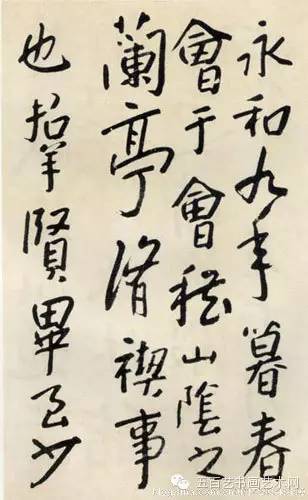 永和九年暮春
會于會稽山陰之
蘭亭脩禊事
也群賢畢至少
五百艺书画艺术网